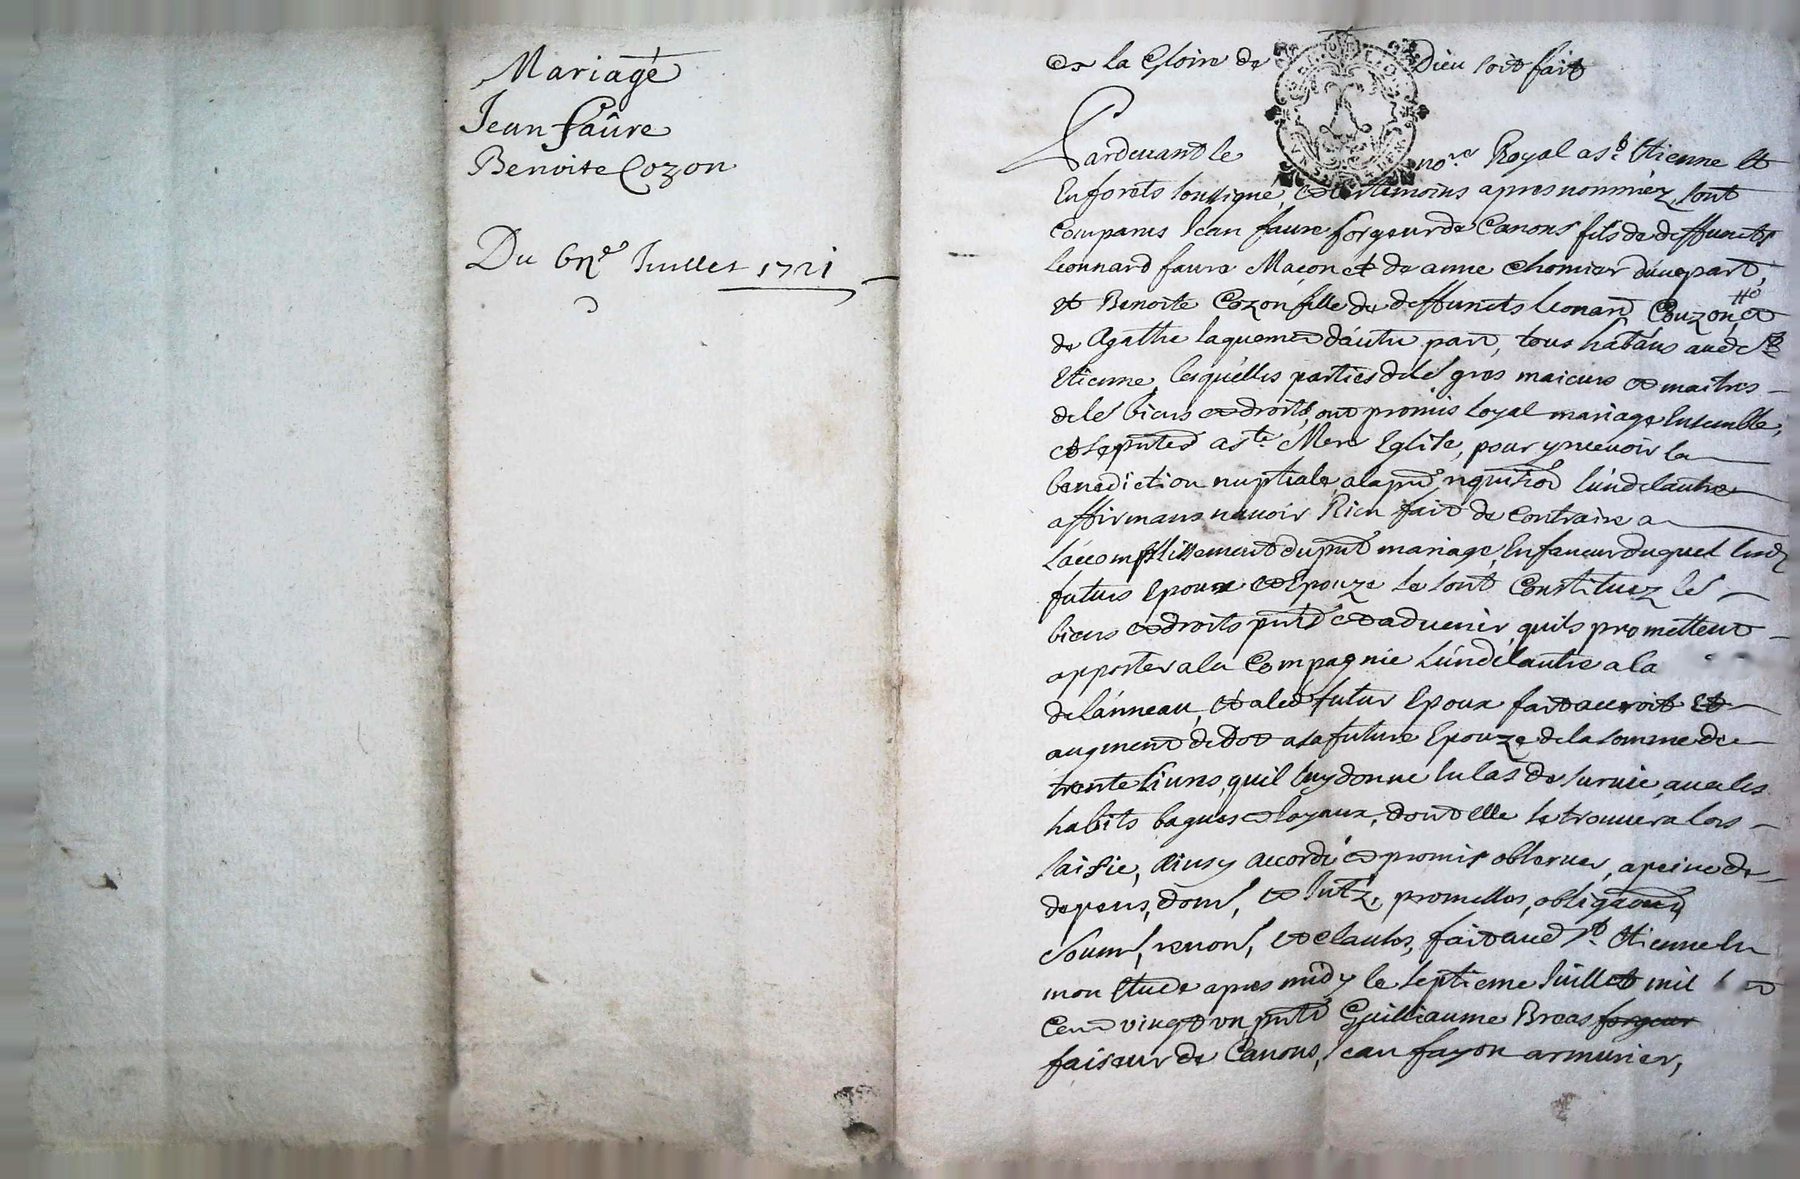 Mariage
Jean faure
Benoite Cozon
Du 6me Juillet 1721
A la Gloire de Dieu soit fait
Pardevant le nore Royal a st Etienne et
En forets soussigné, et les temoins apres nommez, sont
Comparus Jean faure forgeur de Canons fils de deffuncts
Leonnard faure Maçon et de anne Chomier d'une part,
et Benoite Cozon fille de deffuncts Leonard Couzon, et
de Agathe Jaquemen d'autre part, tous habtans aud st
Etienne, lesquelles parties de le gres maieurs et maitres
de le biens et droits, ont promis loyal mariage Ensemble,
et se pnter a ste Mere Eglise, pour y recevoir la
benediction nuptiale a la pre requision l'un de l'autre
affirmans n'avoir Rien fait de contraire a
l'accomplissement du pnt mariage, En faveur duquel lesd
futurs Epoux et Epouze se sont Constituez les
biens et droits pnts et advenir, quils promettent
apporter a la Compagnie l'un de l'autre a la
de l'anneau, et a led futur Epoux fait accroit et
augment de Dot a sa future Epouze, de la somme de
trente livres, quil luy donne En cas de survie, avec les
habits bagues et Joyaux, dont elle se trouvera lors
saisie, Ainsy accordé et promis observer, a peine de
depens, dom, et Intz, promesses, obligaond
Soum, renon, et clauses, fait aud st Etienne En
mon Etude apres midy le septieme Juillet mil
Cent vingt un, pnts Guilliaume Broas forgeur
faiseur de Canons, Jean fayon armurier,